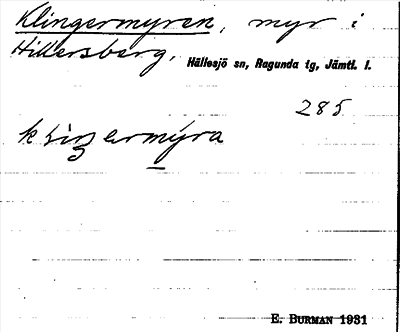 Klingermyren, myr i
Hillersberg, Hällesjö sn, Ragunda tg, Jämtl. l.
285
kliŋermýra
E. BURMAN 1931